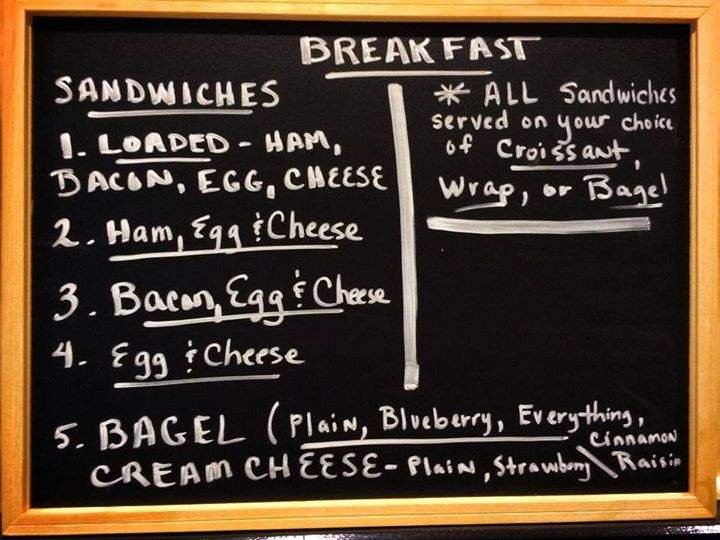 BREAKFAST
SANDWICHES
1. LOADED - HAM,
BACON, EGG, CHEESE
2. Ham, Egg & Cheese
3. Bacon, Egg & Cheese
4. Egg & Cheese
* ALL Sandwiches
served on your choice
of Croissant,
Wrap, or Bagel
5. BAGEL (Plain, Blueberry, Everything,
Cinnamon
Raisin
CREAM CHEESE - Plain, Strawberry